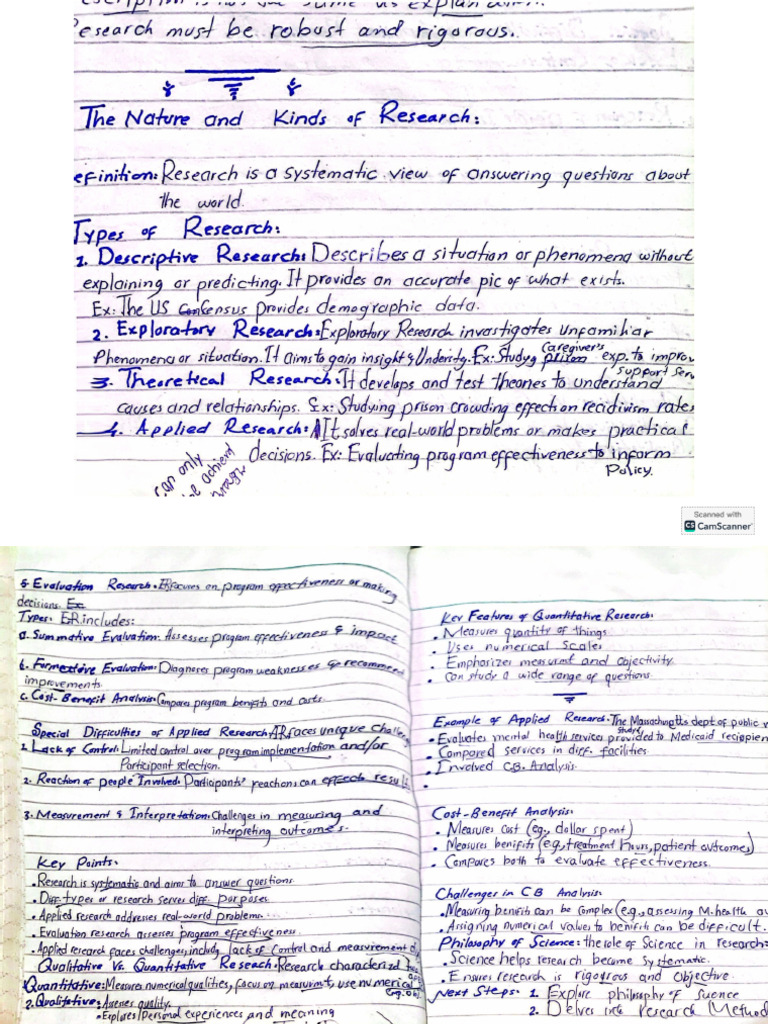 Research must be robust and rigorous.
The Nature and Kinds of Research:
efinition: Research is a systematic view of answering questions about
the world.
Types of Research:
1. Descriptive Research: Describes a situation or phenomena without
explaining or predicting. It provides an accurate pic of what exists.
Ex: The US Concensus provides demographic data.
2. Exploratory Research: Exploratory Research investigates unfamiliar
Phenomena or situation. It aims to gain insight & Ex: Study Caregiver's exp. to improv
support serv
3. Theoretical Research: It develops and test theories to understand
causes and relationships. Ex: Studying prison crowding effect on recidivism rates
4. Applied Research: It solves real-world problems or makes practical
decisions. Ex: Evaluating program effectiveness to inform
Policy.
can only
be achiend
Scanned with
CS CamScanner
5. Evaluation Research: focuses on program effectiveness or making
decisions. Ex
Types: E.R. includes:
a. Summative Evaluation: Assesses program effectiveness & impact
b. Formative Evaluation: Diagneses program weaknesses & recommend
improvements.
c. Cost-Benefit Analysis: Compares program benifits and costs.
Special Difficulties of Applied Research: AR faces unique challen
1. Lack of Control: Limited control over program implementation and/or
Participant selection.
2. Reaction of people Involved: Participants' reactions can effect resul
3. Measurement & Interpretation: Challenges in measuring and
interpreting outcomes.
Key Points:
• Research is systematic and aims to answer questions
• Diff types or research serves diff. purposes
• Applied research addresses real-world problems.
• Evaluation research assesses program effectiveness.
• Applied research faces challenges, includig lack of Control and measurement
Qualitative Vs. Quantitative Reseach: Research characterized
Quantitative: Measures numerical qualities, focus on measurmt, use numerical
2. Qualitative: Assesses quality.
• Explores Personal experiences and meaning
Key Features of Quantitative Research:
• Measures quantity of things
• Uses numerical Scales
• Emphasizes measurmt and objectivity.
• Can study a wide range of questions
Example of Applied Research: The Massachusetts dept of public
• Evaluates mental health services provided to Medicaid recipien
• Compared services in diff. facilities.
• Involved C.B. Analysis.
Cost-Benefit Analysis:
• Measures Cost (eg., dollar spent)
• Measures benifits (e.g., treatment hours, patient outcomes)
• Compares both to evaluate effectiveness.
Challenges in CB Analysis:
• Measuring benifits can be complex (e.g., assessing M.health
• Assigning numerical values to benifits can be difficult.
Philosophy of Science: the role of Science in research:
• Science helps research become systematic.
• Ensures research is rigorous and Objective
Next Steps: 1. Explore philosophy of Suence
2. Delves into Research Method